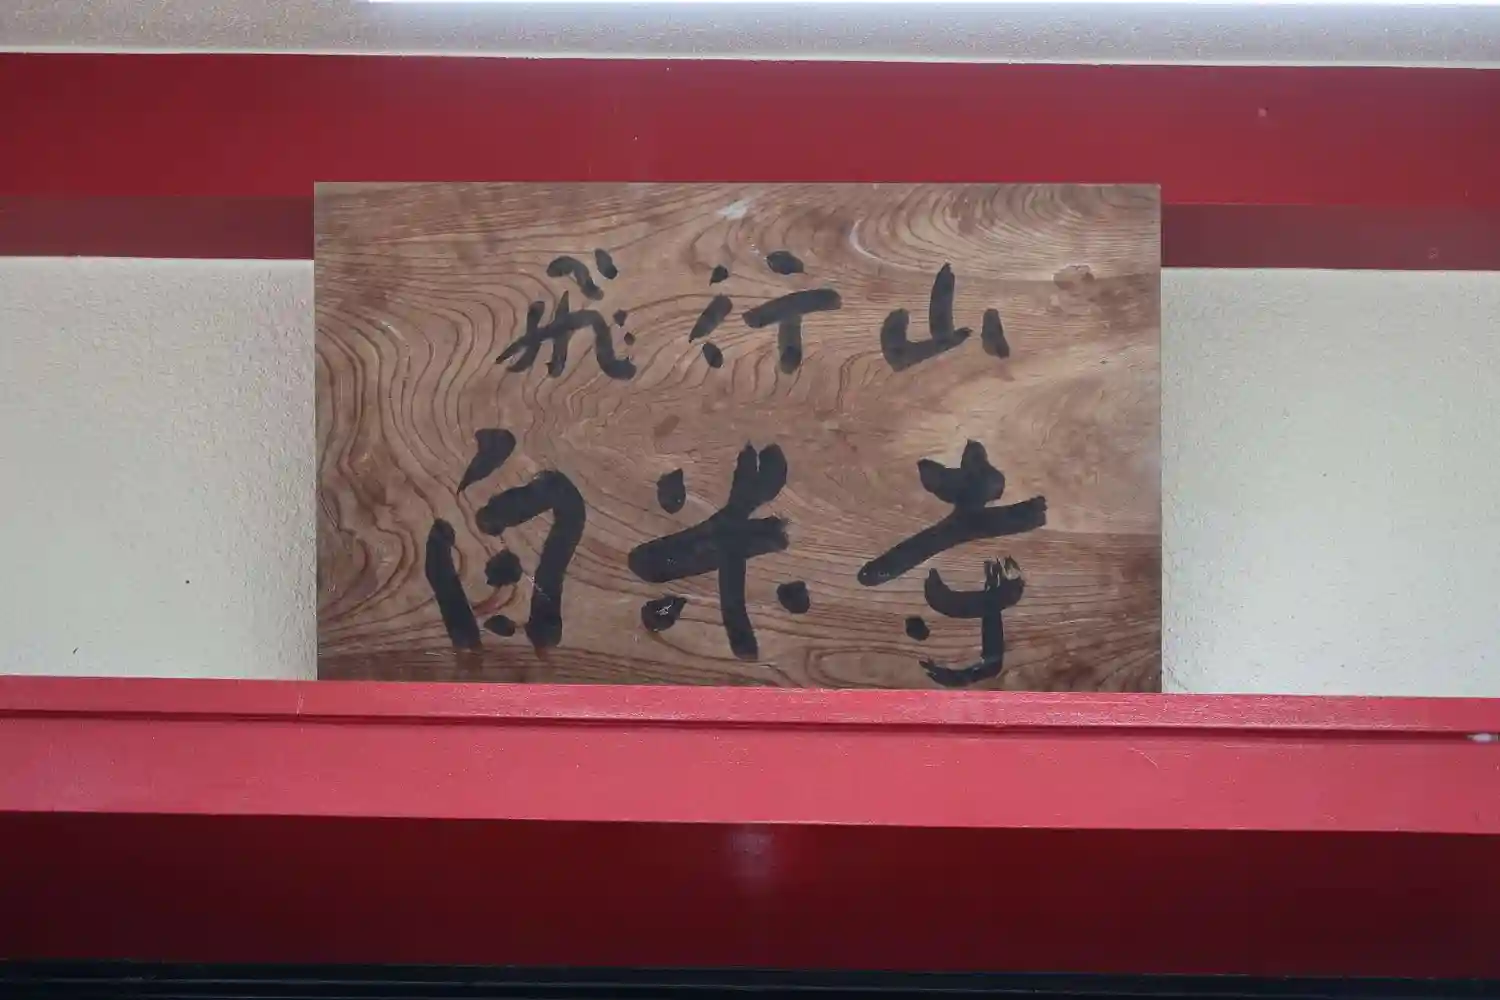 飛行山
白米寺